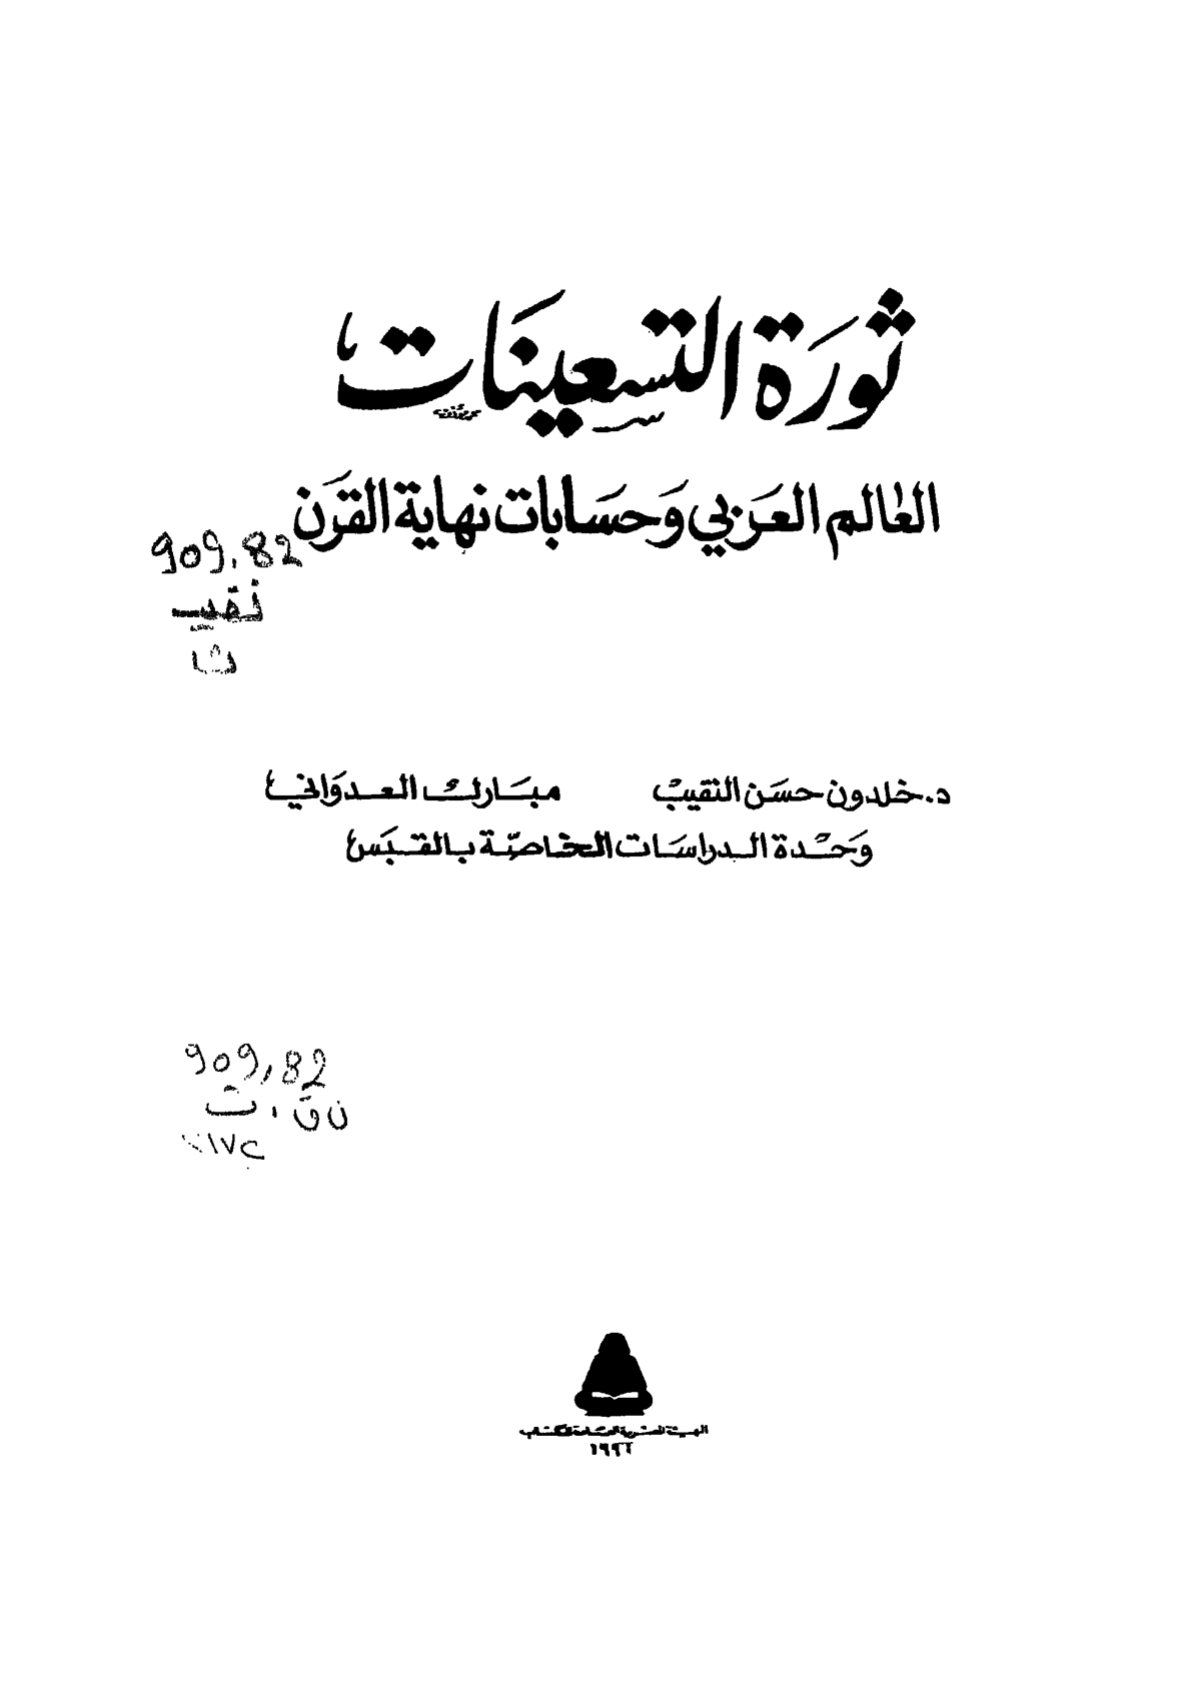 ثورة التسعينات
العالم العربي وحسابات نهاية القرن
909.82
نقيب
ث
د. خلدون حسن النقيب مبارك العدواني
وحدة الدراسات الخاصة بالقبس
909,82
ن ق . ث
الهيئة المصرية العامة للكتاب
١٩٩٢